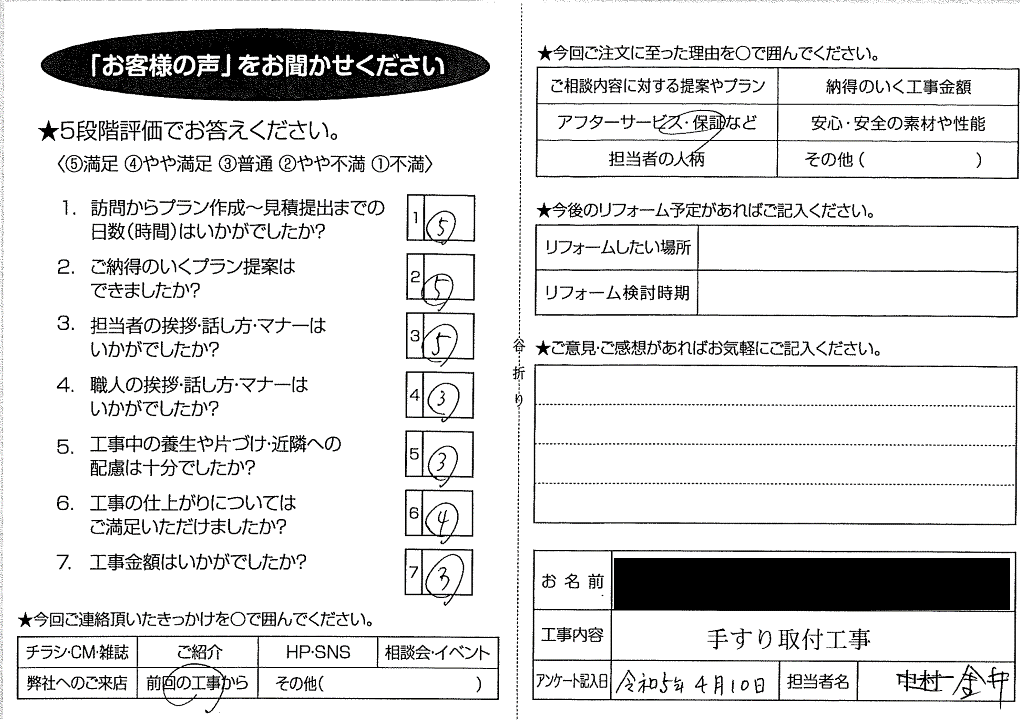 「お客様の声」をお聞かせください
★5段階評価でお答えください。
〈⑤満足 ④やや満足 ③普通 ②やや不満 ①不満〉
1. 訪問からプラン作成〜見積提出までの
日数(時間)はいかがでしたか?
1 ⑤
2. ご納得のいくプラン提案は
できましたか?
2 ⑤
3. 担当者の挨拶・話し方・マナーは
いかがでしたか?
3 ⑤
4. 職人の挨拶・話し方・マナーは
いかがでしたか?
4 ③
5. 工事中の養生や片づけ・近隣への
配慮は十分でしたか?
5 ③
6. 工事の仕上がりについては
ご満足いただけましたか?
6 ④
7. 工事金額はいかがでしたか?
7 ③
★今回ご連絡頂いたきっかけを○で囲んでください。
チラシ・CM・雑誌 ご紹介 HP・SNS 相談会・イベント
弊社へのご来店 前回の工事から その他( )
谷折り
★今回ご注文に至った理由を○で囲んでください。
ご相談内容に対する提案やプラン 納得のいく工事金額
アフターサービス・保証など 安心・安全の素材や性能
担当者の人柄 その他( )
★今後のリフォーム予定があればご記入ください。
リフォームしたい場所
リフォーム検討時期
★ご意見・ご感想があればお気軽にご記入ください。
お名前
工事内容 手すり取付工事
アンケート記入日 令和5年4月10日 担当者名 中村 金井